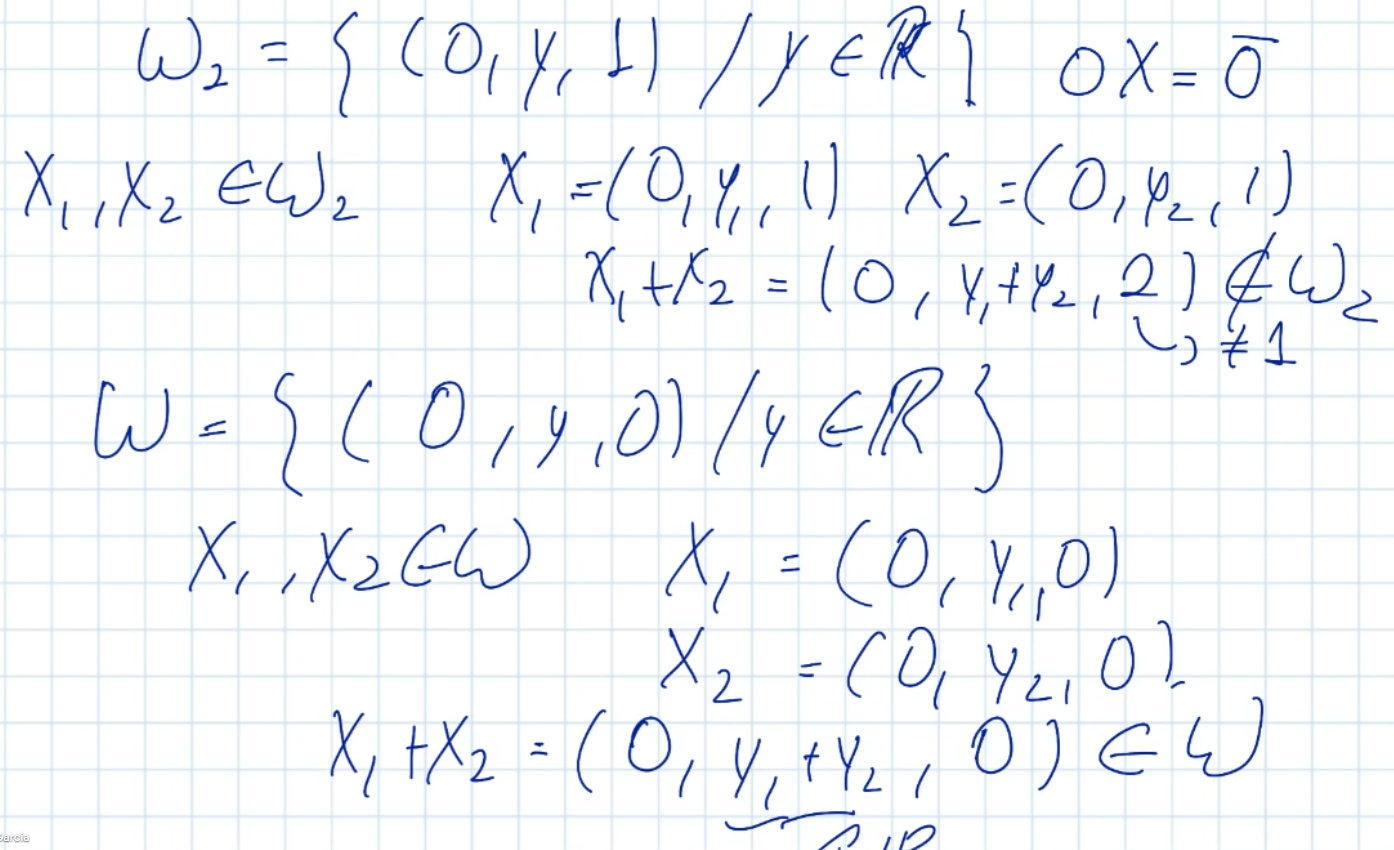 W₂ = { (0, y, 1) / y ∈ ℝ } 0X = 0̅
X₁, X₂ ∈ W₂ X₁ = (0, y₁, 1) X₂ = (0, y₂, 1)
X₁ + X₂ = (0, y₁ + y₂, 2) ∉ W₂
↪ ≠ 1
W = { (0, y, 0) / y ∈ ℝ }
X₁, X₂ ∈ W X₁ = (0, y₁, 0)
X₂ = (0, y₂, 0)
X₁ + X₂ = (0, y₁ + y₂, 0) ∈ W